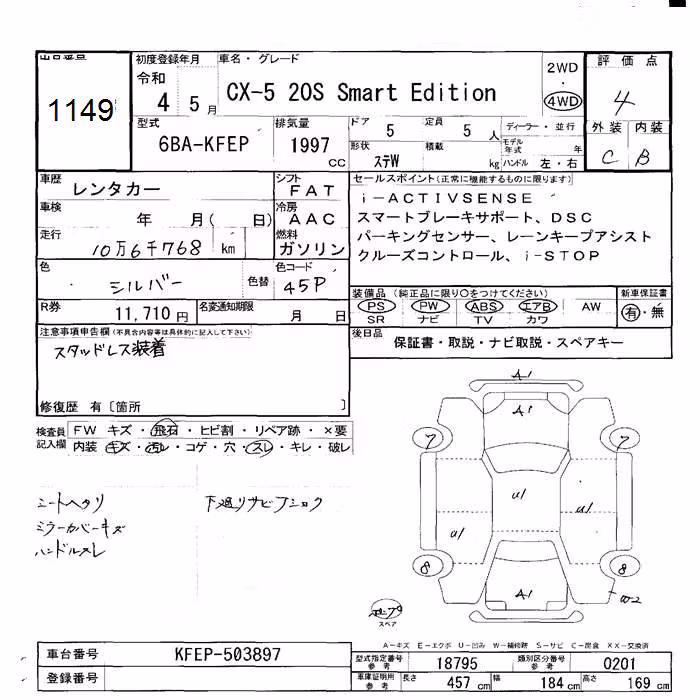 出品番号
1149
初度登録年月
令和
4 5月
車名・グレード
CX-5 20S Smart Edition
2WD
・
4WD
評価点
4
型式
6BA-KFEP
排気量
1997
CC
ドア
5
定員
5 人
ディーラー・並行
モデル年式 年
形状
ステW
積載
kg
ハンドル 左・右
外装 内装
C B
車歴
レンタカー
シフト
FAT
車検
年 月( 日)
冷房
AAC
走行
10万6千768 km
燃料
ガソリン
色
シルバー
色替
色コード
45P
R券
11,710円
名変通知期限
月 日
セールスポイント(正常に機能するものに限ります)
i-ACTIVSENSE
スマートブレーキサポート、DSC
パーキングセンサー、レーンキープアシスト
クルーズコントロール、i-STOP
装備品(純正品に限り○をつけてください)
PS PW ABS エアB AW
SR ナビ TV カワ
新車保証書
有・無
後日品
保証書・取説・ナビ取説・スペアキー
注意事項申告欄(不具合内容等は具体的に記入して下さい)
スタッドレス装着
修復歴 有〔箇所 〕
検査員記入欄
FW キズ・飛石・ヒビ割・リペア跡・×要
内装 キズ・汚レ・コゲ・穴・スレ・キレ・破レ
シートヘタリ
ミラーカバーキズ
ハンドルスレ
下廻リサビフショク
A1
A1
7 7
U1
U1
U1
8 8
A1
W2
スペア
A-キズ E-エクボ U-凹み W-補修跡 S-サビ C-腐食 XX-交換済
車台番号
KFEP-503897
登録番号
型式指定番号
参考
18795
類別区分番号
参考
0201
車庫証明用
参考
長さ 457 cm
幅 184 cm
高さ 169 cm